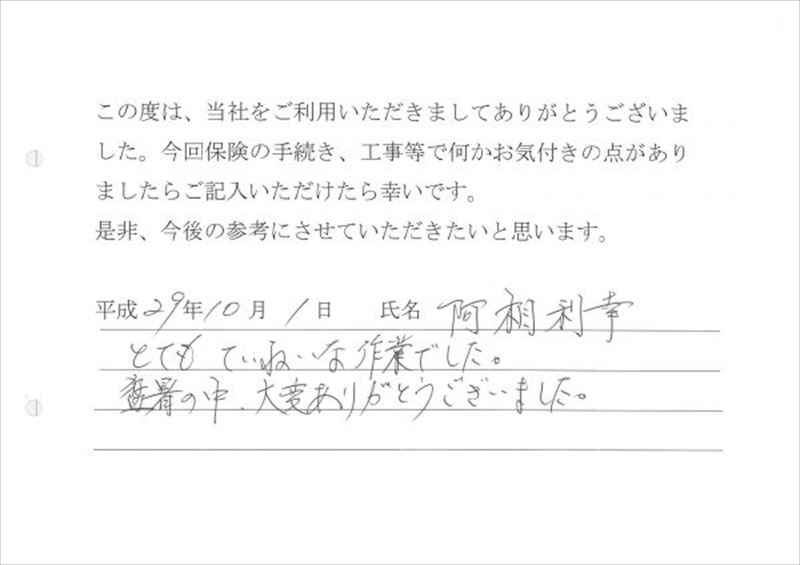 この度は、当社をご利用いただきましてありがとうございま
した。今回保険の手続き、工事等で何かお気付きの点があり
ましたらご記入いただけたら幸いです。
是非、今後の参考にさせていただきたいと思います。
平成29年10月1日 氏名 阿相利幸
とてもていねいな作業でした。
暑の中、大変ありがとうございました。